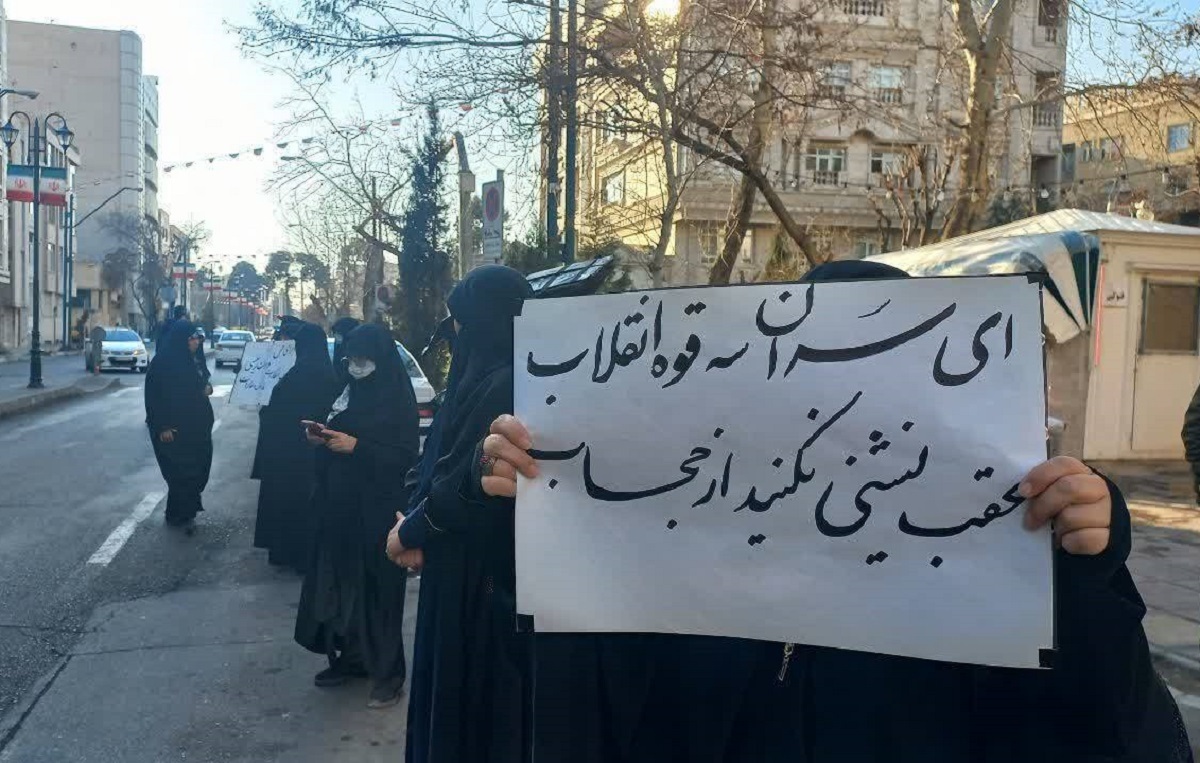 ای سران سه قوه انقلاب
عقب نشینی نکنید از حجاب